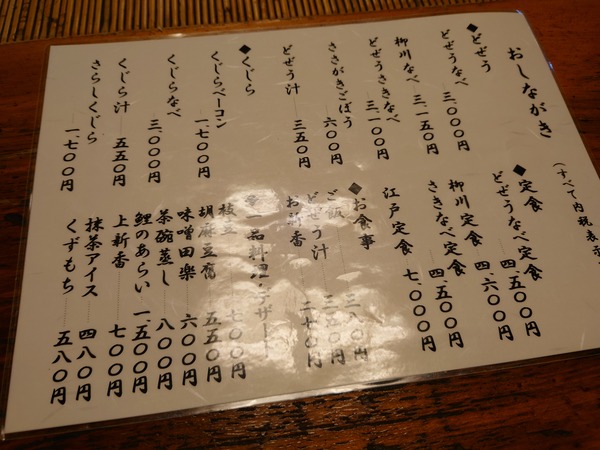 おしながき
(すべて内税表示
◆どぜう
どぜうなべ 三、〇〇〇円
柳川なべ 三、一五〇円
どぜうさきなべ 三、一〇〇円
ささがきごぼう 六〇〇円
どぜう汁 三五〇円
◆くじら
くじらベーコン 一、七〇〇円
くじらなべ 三、〇〇〇円
くじら汁 五五〇円
さらしくじら 一、七〇〇円
◆定食
どぜうなべ定食 四、五〇〇円
柳川定食 四、六〇〇円
さきなべ定食 四、五〇〇円
江戸定食 七、〇〇〇円
◆お食事
ご飯 三八〇円
どぜう汁 三五〇円
お新香
◆一品料理・デザート
枝豆 七〇〇円
胡麻豆腐 五五〇円
味噌田楽 六〇〇円
茶碗蒸し 八〇〇円
鯉のあらい 一、五〇〇円
上新香 七〇〇円
抹茶アイス 四八〇円
くずもち 五八〇円